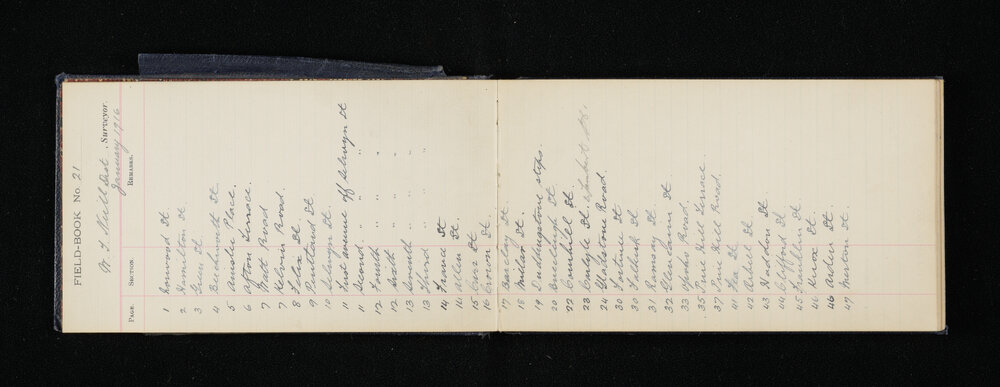 FIELD-BOOK No 21
W. T. Neill Dist. Surveyor.
January 1916
PAGE. SECTION. REMARKS.
1 Norwood St
2 Hamilton St
3 Grey St
4 Beechworth St
5 Amoke Place.
6 Afton Terrace.
7 Watt Road
7 Kelvin Road.
8 Felix St
9 Pentland St
10 Selwyn St
11 First avenue off Selwyn St
11 Second " "
12 Fourth " "
12 Sixth " "
13 Seventh " "
13 Third " "
14 Francis St
14 Allen St
15 Carr St
16 Crown St
17 Barclay St.
18 Millar St.
19 Dubbingstone steps.
20 Buccleugh St
22 Cranhill St
23 Carlyle St.
24 Gladstone Road.
30 Fortune St
30 Selkirk St
31 Ramsay St.
32 Glendarm St
33 Opoho Road.
35 Pine Hill Terrace
37 Pine Hill Road.
41 Fox St
42 Arkiel St
43 Haddon St
44 Clifford St
45 Franklin St.
46 Knox St
46 Arden St.
47 Merton St.